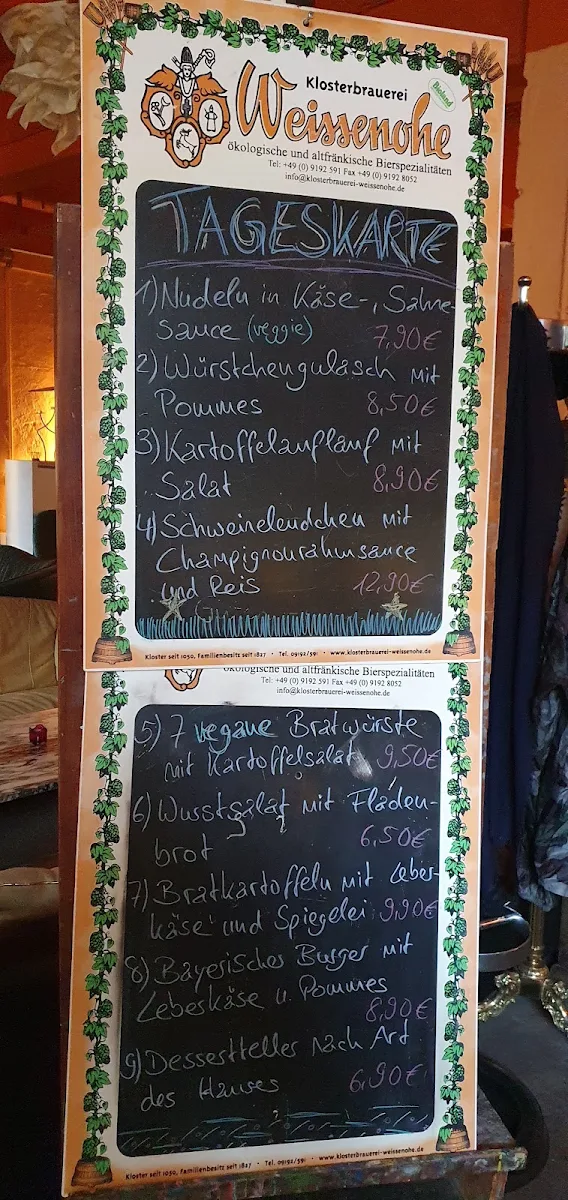 Klosterbrauerei
Weissenohe
Bioland
ökologische und altfränkische Bierspezialitäten
Tel: +49 (0) 9192 591 Fax +49 (0) 9192 8052
info@klosterbrauerei-weissenohe.de
TAGESKARTE
1) Nudeln in Käse-, Sahne-
sauce (veggie) 7,90€
2) Würstchengulasch mit
Pommes 8,50€
3) Kartoffelauflauf mit
Salat 8,90€
4) Schweinelendchen mit
Champignonrahmsauce
und Reis 12,90€
Kloster seit 1050, Familienbesitz seit 1827 • Tel. 09192/591 • www.klosterbrauerei-weissenohe.de
ökologische und altfränkische Bierspezialitäten
Tel: +49 (0) 9192 591 Fax +49 (0) 9192 8052
info@klosterbrauerei-weissenohe.de
5) 7 vegane Bratwürste
mit Kartoffelsalat 9,50€
6) Wurstsalat mit Fladen-
brot 6,50€
7) Bratkartoffeln mit Leber-
käse und Spiegelei 9,90€
8) Bayerisches Burger mit
Leberkäse u. Pommes
8,90€
9) Dessertteller nach Art
des Hauses 6,90€
Kloster seit 1050, Familienbesitz seit 1827 • Tel. 09192/591 • www.klosterbrauerei-weissenohe.de